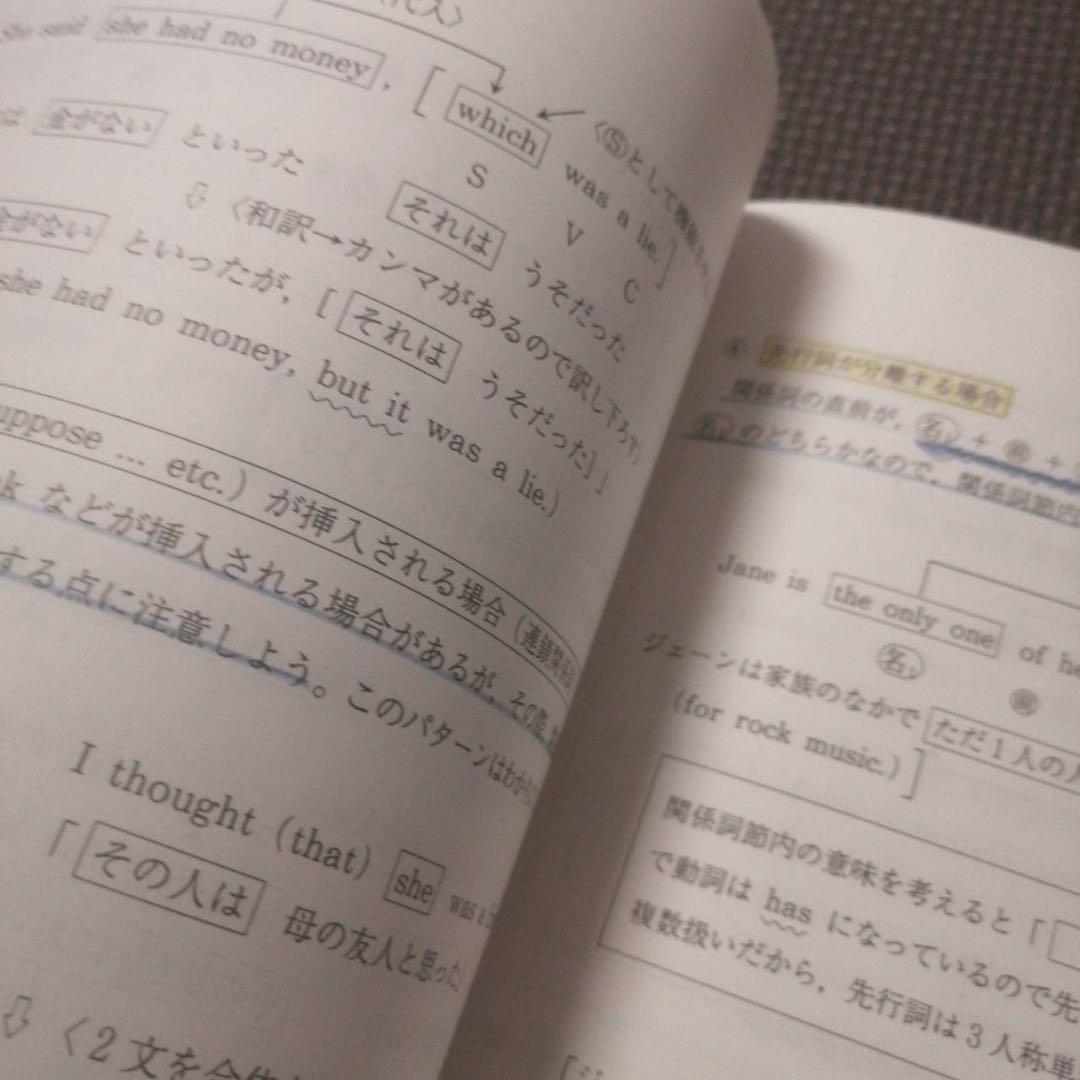 she had no money, [ which was a lie. ]
S V C
は 金がない といった それは うそだった
⇩〈和訳→カンマがあるので訳し下ろす〉
金がない といったが, [ それは うそだった ]」
she had no money, but it was a lie.)
suppose … etc.) が挿入される場合
などが挿入される場合があるが,
する点に注意しよう。このパターンは
I thought (that) she was a
「その人は 母の友人と思った
⇩〈2文を
④ 先行詞が分離する場合
関係詞の直前が, 名₁ + 前 +
名₂のどちらかなので, 関係詞節内
Jane is the only one of
名₁ 前
ジェーンは家族のなかで ただ1人の
(for rock music.) ]
関係詞節内の意味を考えると「
で動詞は has になっているので先
複数扱いだから, 先行詞は3人称単